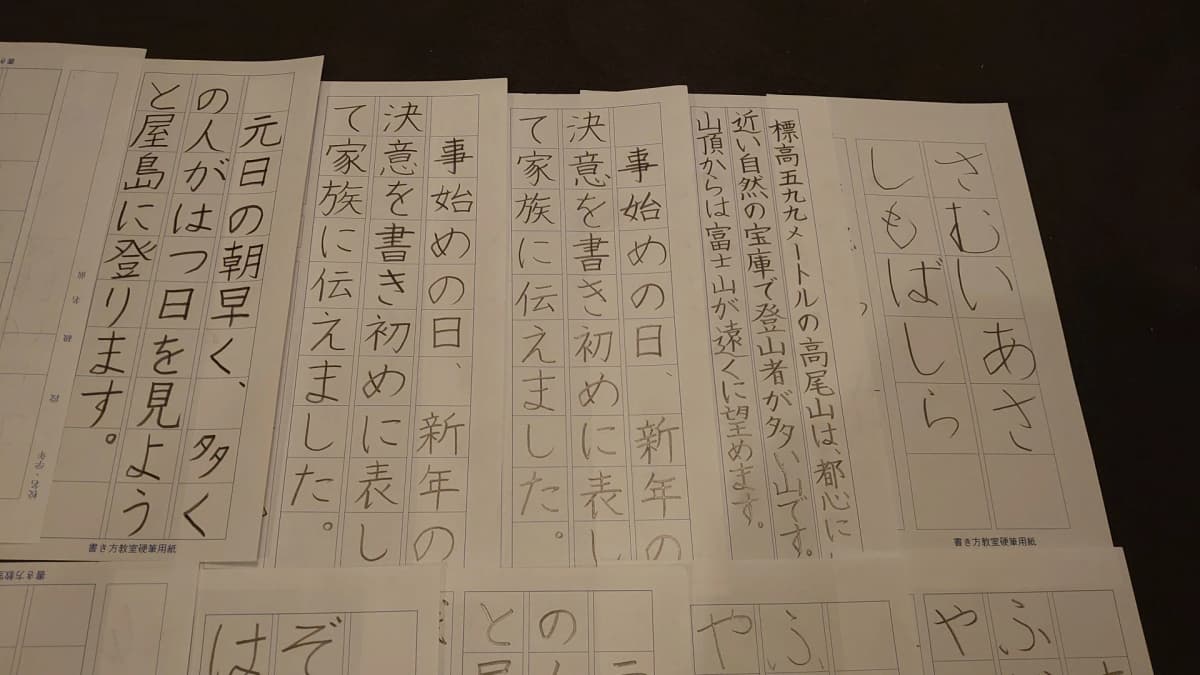 さむいあさ
しもばしら
書き方教室硬筆用紙
標高五九九メートルの高尾山は、都心に
近い自然の宝庫で登山者が多い山です。
山頂からは富士山が遠くに望めます。
事始めの日、新年の
決意を書き初めに表し
て家族に伝えました。
事始めの日、新年の
決意を書き初めに表し
て家族に伝えました。
元日の朝早く、多く
の人がはつ日を見よう
と屋島に登ります。
書き方教室硬筆用紙
校名・学年
段
級
ふ
や
ふ
や
の
と
ぞ
は